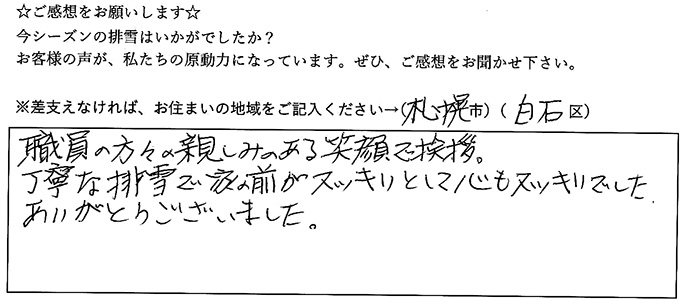 ☆ご感想をお願いします☆
今シーズンの排雪はいかがでしたか？
お客様の声が、私たちの原動力になっています。ぜひ、ご感想をお聞かせ下さい。
※差支えなければ、お住まいの地域をご記入ください→(札幌市) (白石区)
職員の方々の親しみのある笑顔で挨拶。
丁寧な排雪で家の前がスッキリとして心もスッキリでした
ありがとうございました。